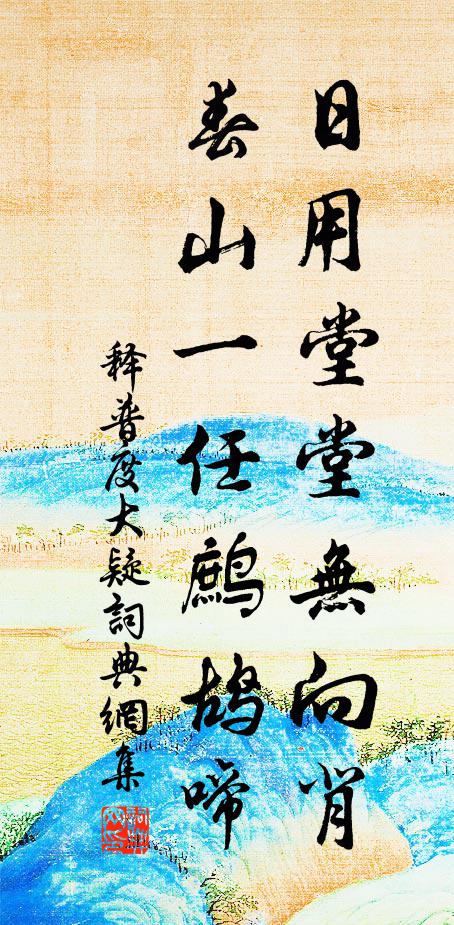 日用堂堂無向背
春山一任鷓鴣啼
释普度大疑詞典網集